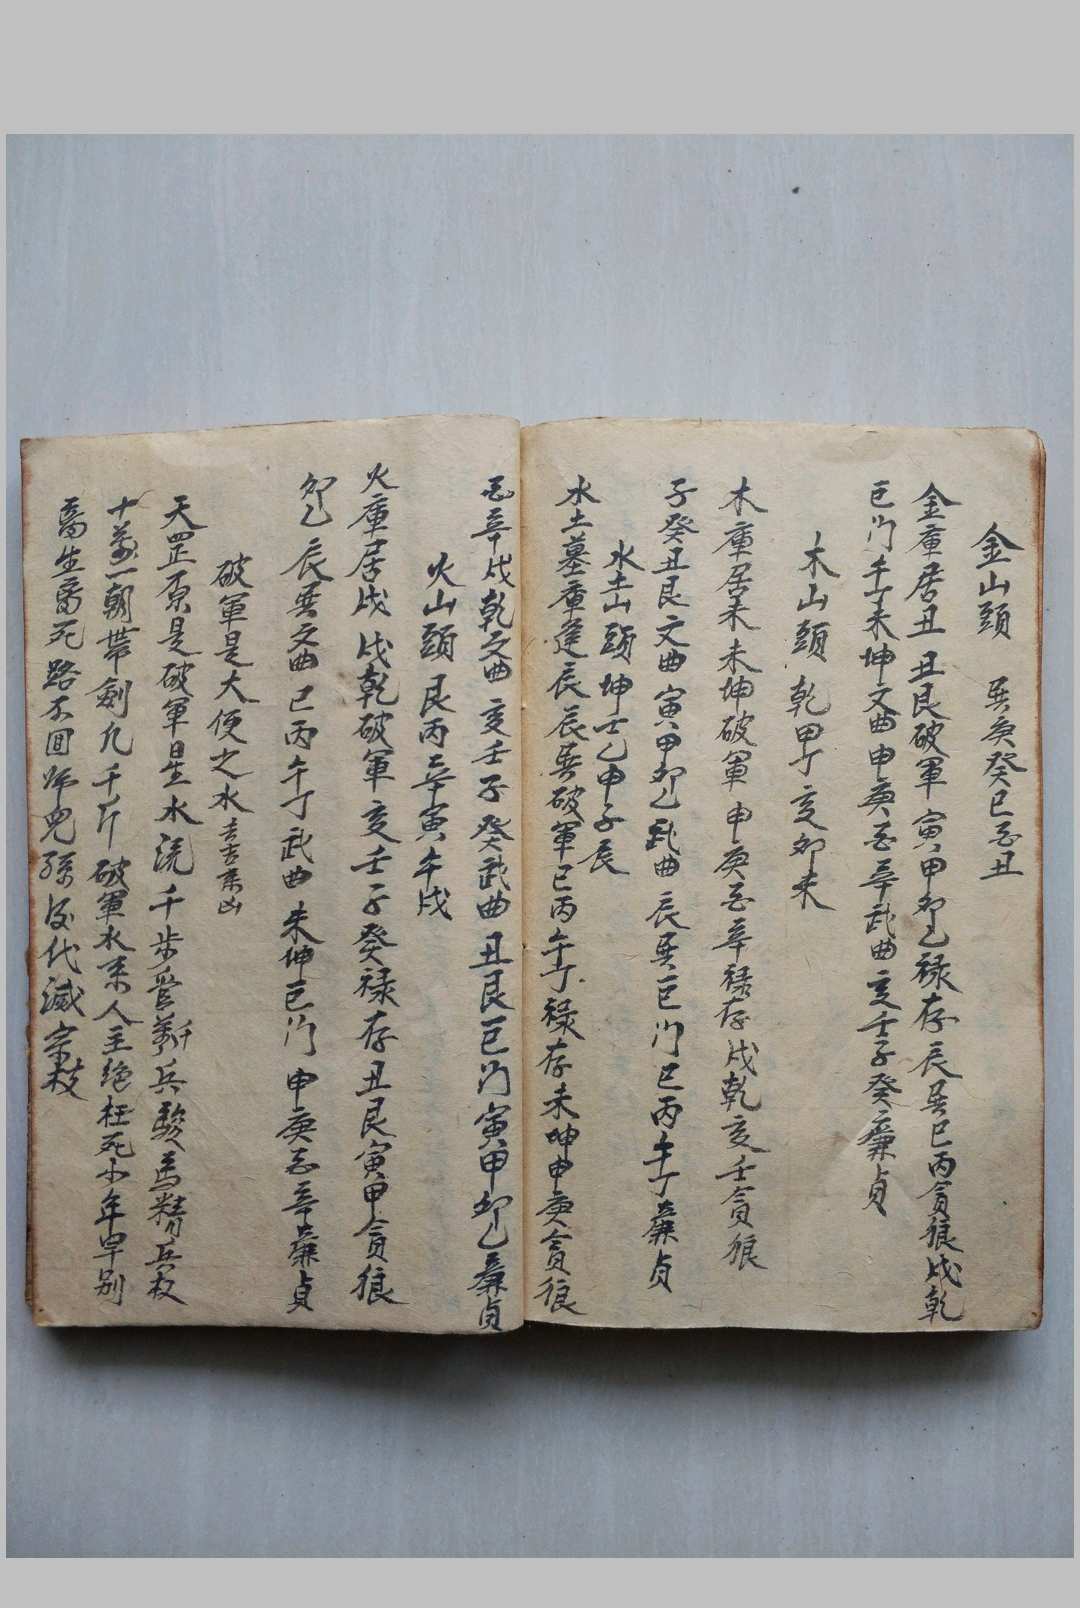 金山頭 巽庚癸巳酉丑
金庫居丑 丑艮破軍 寅甲卯乙禄存 辰巽巳丙貪狼 戌乾
巨门 午丁未坤文曲 申庚酉辛武曲 亥壬子癸廉貞
木山頭 乾甲丁亥卯未
木庫居未 未坤破軍 申庚酉辛禄存 戌乾亥壬貪狼
子癸丑艮文曲 寅甲卯乙武曲 辰巽巨门 巳丙午丁廉貞
水土山頭 坤壬乙申子辰
水土墓庫逢辰 辰巽破軍 巳丙午丁禄存 未坤申庚貪狼
酉辛戌乾文曲 亥壬子癸武曲 丑艮巨门 寅甲卯乙廉貞
火山頭 艮丙辛寅午戌
火庫居戌 戌乾破軍 亥壬子癸禄存 丑艮寅甲貪狼
卯乙辰巽文曲 巳丙午丁武曲 未坤巨门 申庚酉辛廉貞
破軍是大便之水 去吉来凶
天罡原是破軍星 水流千步管千 兵 駿馬精兵
十萬 一朝帶劍九千斤 破軍水来人主絶 枉死少年早别
生 死路不回 兒孫後代滅宗枝